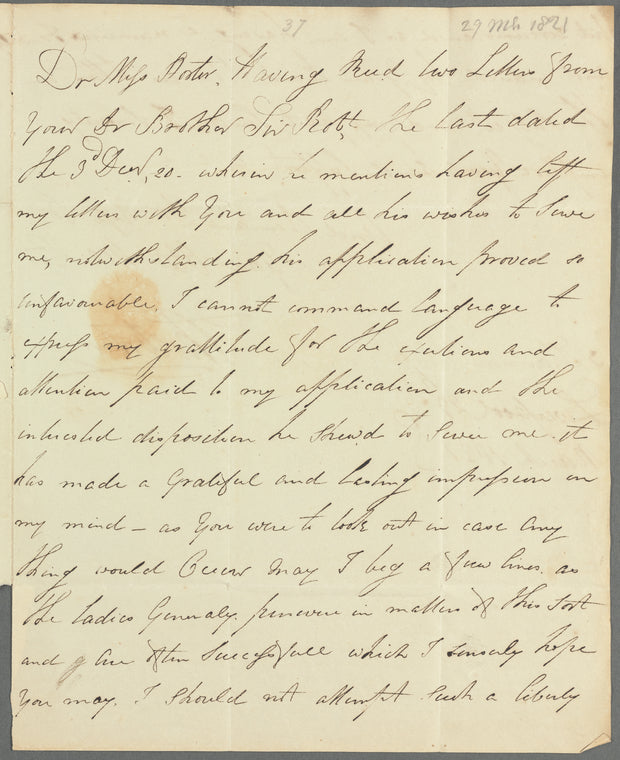 37
29 Mch 1821
Dr Miss Porter, Having Recd two Letters from
your Dr Brother Sir Robt, the last dated
the 3d Decr, 20 - wherein he mentions having left
my letters with You and all his wishes to Serve
me, notwithstanding his application proved so
unfavourable, I cannot command language to
express my grattitude for the exertions and
attention paid to my application and the
interested disposition he Shew'd to Serve me. it
has made a Grateful and lasting impression on
my mind - as You were to look out in case any
thing would Occur may I beg a few lines. as
the Ladies Generaly persevere in matters of this Sort
and are often Successfull which I sincerly hope
You may. I should not attempt Such a liberty